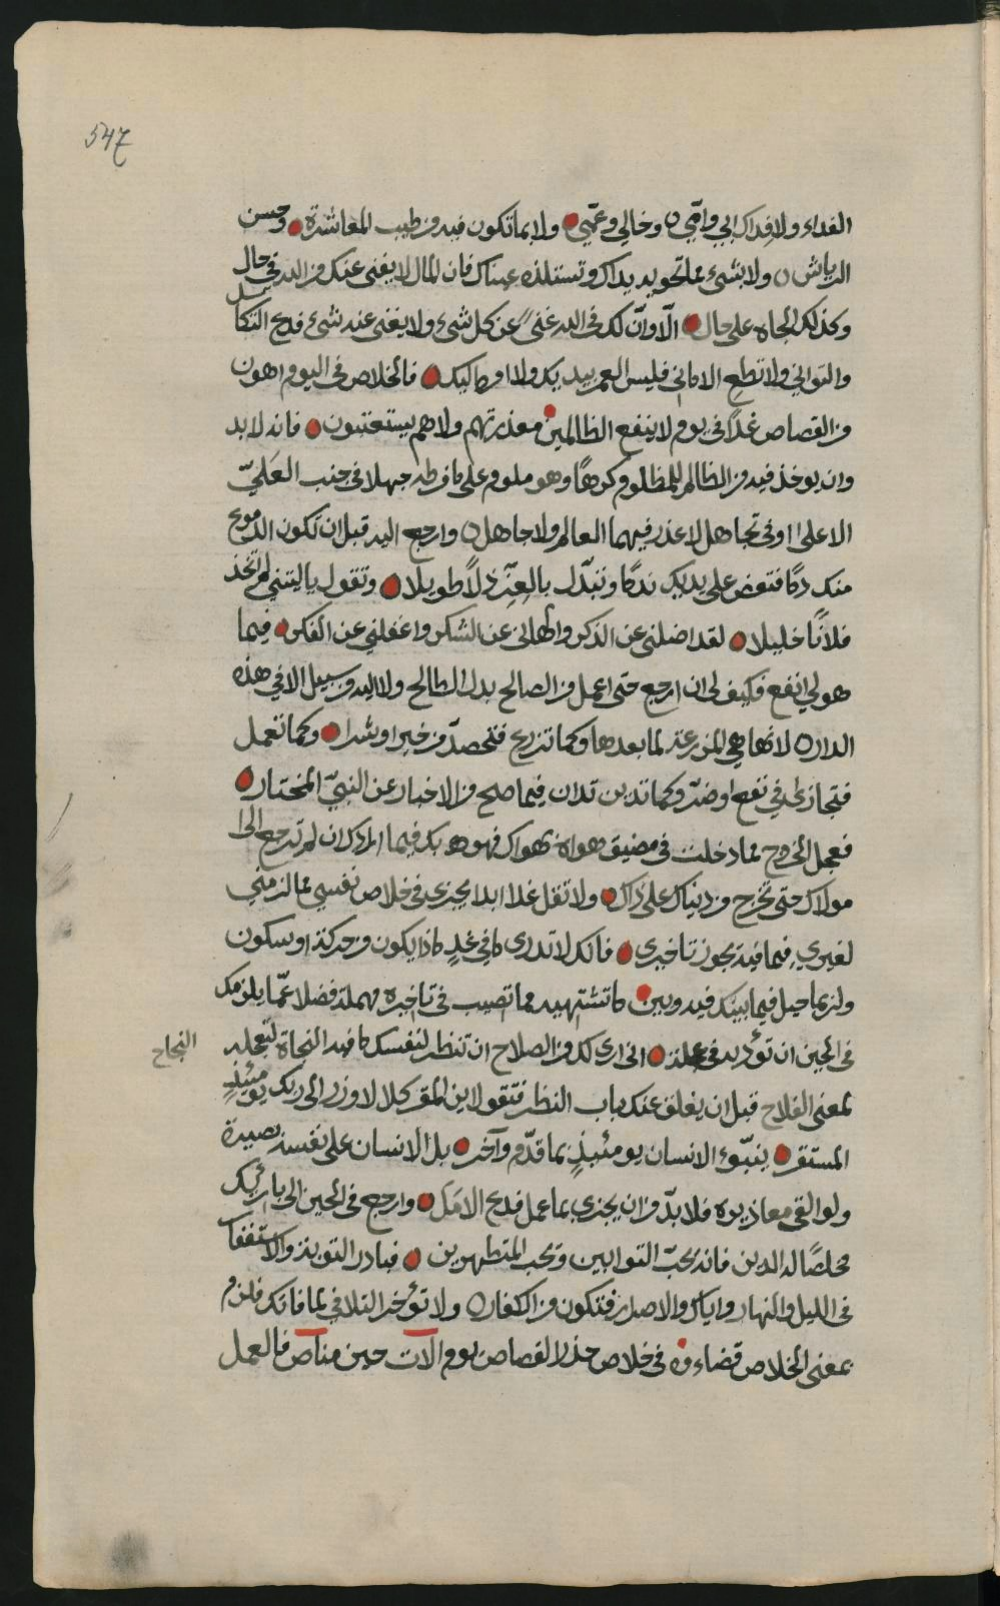 547
الفداء ولا فداك ابي وامّي ٥ وخالي وعمّي ولا بما تكون فيه من طيب المعاشرة وحسن
الرياش ٥ ولا بشيء مما تحويه يداك وتستلذه عيناك فان المال لا يغني عنك من الله في حال
وكذلك الجاه على حال الّا وانّ لك في الله غنىً عن كل شيء ولا يغني عنه شيء فدع التكاسل
والتواني ولا تطع الاماني فليس العمر بيديك ولا امره اليك فالخلاص في اليوم اهون
من القصاص غدًا في يوم لا ينفع الظالمين معذرتهم ولا هم يستعتبون فانه لابد
وان يوخذ فيه من الظالم للمظلوم كرهًا وهو ملوم على ما فرطه جهلا في جنب العَليّ
الاعلى او في تجاهل لا عذر فيهما العالم ولا جاهل ٥ وارجع اليه قبل ان تكون الدموع
منك دمًا فتعض على يديك ندمًا وتبدّل بالعِزّ ذلًا طويلا وتقول ياليتني لم اتخذ
فلانًا خليلا لقد اضلني عن الذكر والهاني عن الشكر واغفلني عن الفكر فيما
هو لي انفع فكيف لي ان ارجع حتى اعمل من الصالح بدل الطالح ولا اليه من سبيل الا في هذه
الدار ٥ لانها هي المزرعة لما بعدها وكما تزرع فتحصد من خير او شر وكما تعمل
فتجازى في نفع او ضرّ وكما تدين تدان فيما صح من الاخبار عن النبيّ المختار
فعجل الخروج مما دخلت في مضيق هواه بهواك فهوى بك فيما ارداك ان لم ترجع الى
مولاك حتى تخرج من دنياك على ذاك ولا تقل غدا ابدا يجزى في خلاص نفسي مما لزمني
لغيري فيما فيه يجوز تاخيري فانك لا تدري ما في غدٍ ماذا يكون من حركة او سكون
ولربما حيل فيما بينك فيه وبين ما تشتهيه مما تصيب في تاخيره مهملة فضلا عمّا يلزمك
في الحين ان تؤديه في عجلة اني ارى لك من الصلاح ان تنظر لنفسك ما فيه النجاة لتعجله
النجاح
لمعنى الفلاح قبل ان يغلق عنك باب النظر فتقول اين المفر كلا لا وزر الى ربك يومئذٍ
المستقر ينبّؤ الانسان يومئذٍ بما قدّم وآخر بل الانسان على نفسه بصيرة
ولو القى معاذيره فلا بدّ من ان يجزى بما عمل فدع الامَل وارجع في الحين الى بارئك
مخلصًا له الدين فانه يحبّ التوابين ويحب المتطهرين فبادر التوبة والاستغفار
في الليل والنهار واياك والاصرار فتكون من الكفار ٥ ولا تؤخر التلافي لما فاتك فلزم
بمعنى الخلاص قضاءوه في خلاص حذر القصاص يوم الات حين مناص فالعمل